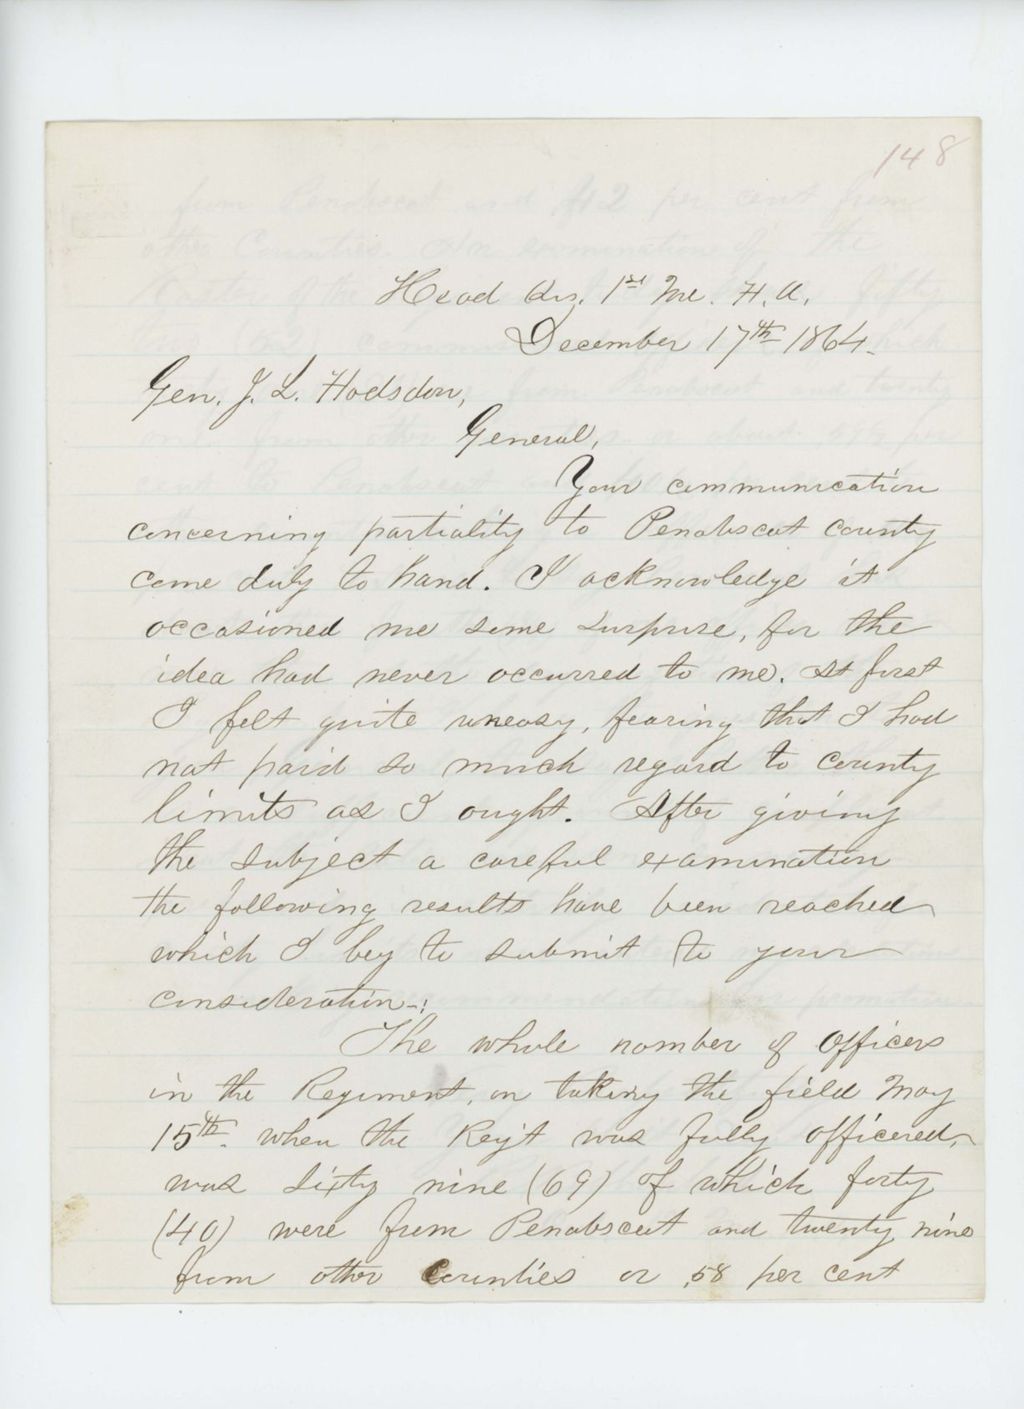 148
Head Qrs. 1st Me. H. A.
December 17th 1864.
Gen. J. L. Hodsdon,
General,
Your communication
concerning partiality to Penobscot County
came duly to hand. I acknowledge it
occasioned me some surprise, for the
idea had never occurred to me. At first
I felt quite uneasy, fearing that I had
not paid so much regard to County
limits as I ought. After giving
the subject a careful examination
the following results have been reached
which I beg to submit to your
consideration-:
The whole number of Officers
in the Regiment, on taking the field May
15th. when the Reg't was fully officered,
was sixty nine (69) of which forty
(40) were from Penobscot and twenty nine
from other Counties or .58 per cent